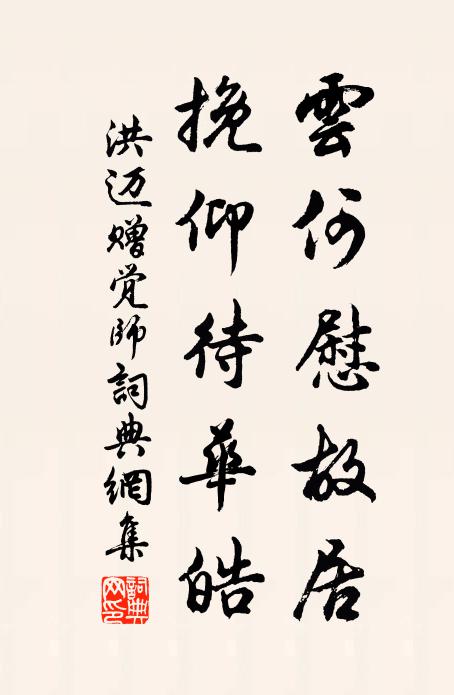 雲何慰故居
挽仰待華皓
洪迈赠觉師詞典網集
詞典网印